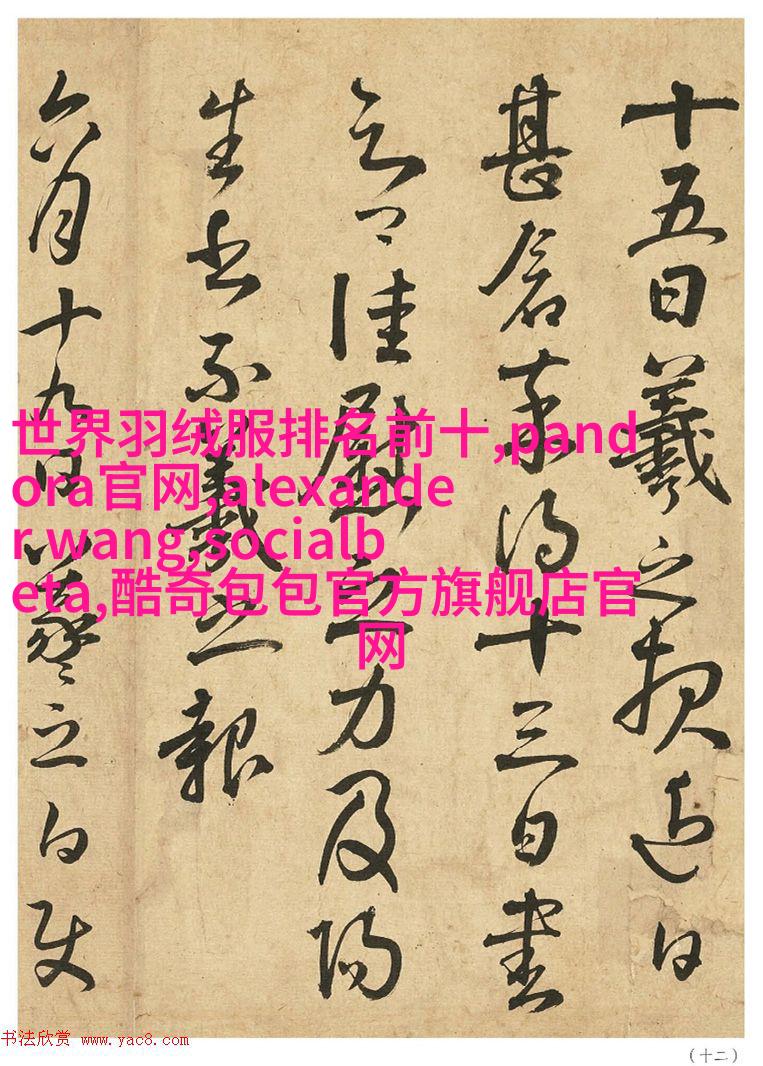 十五日羲之頓近日
甚念得十三日書
佳慰力及
生書不羲之報
六月十九日羲之白使
世界羽绒服排名前十,pand
ora官网,alexande
r wang,socialb
eta,酷奇包包官方旗舰店官
网
书法欣赏 www.yac8.com
(十二)